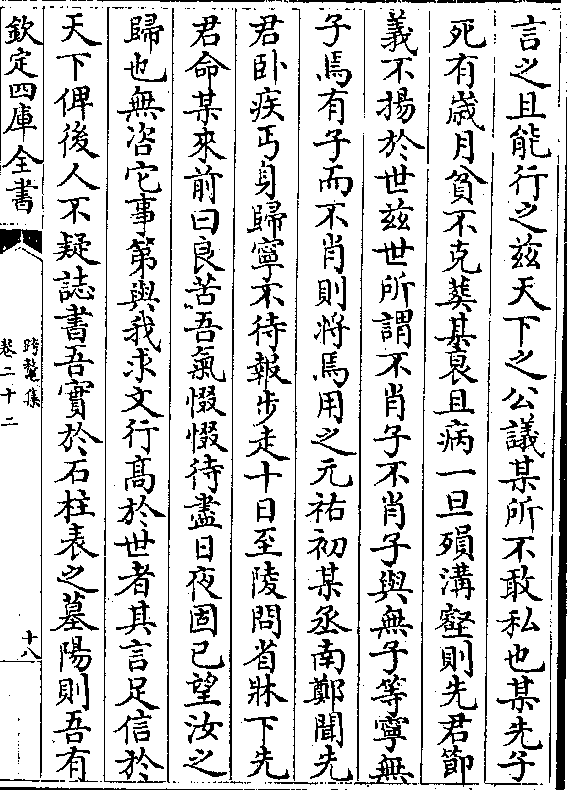 言之且能行之兹天下之公議某所不敢私也某先子
死有歲月貧不克葬某衰且病一旦殞溝壑則先君節
義不揚於世兹世所謂不肖子不肖子與無子等寧無
子焉有子而不肖則將焉用之元祐初某丞南鄭聞先
君卧疾丐身歸寧不待報步走十日至陵問省牀下先
君命某來前曰良苦吾氣惙惙待盡日夜固已望汝之
歸也無咨它事第與我求文行髙於世者其言足信於
天下俾後人不疑誌書吾實於石柱表之墓陽則吾有
欽定四庫全書
跨鼇集
卷二十二
十八